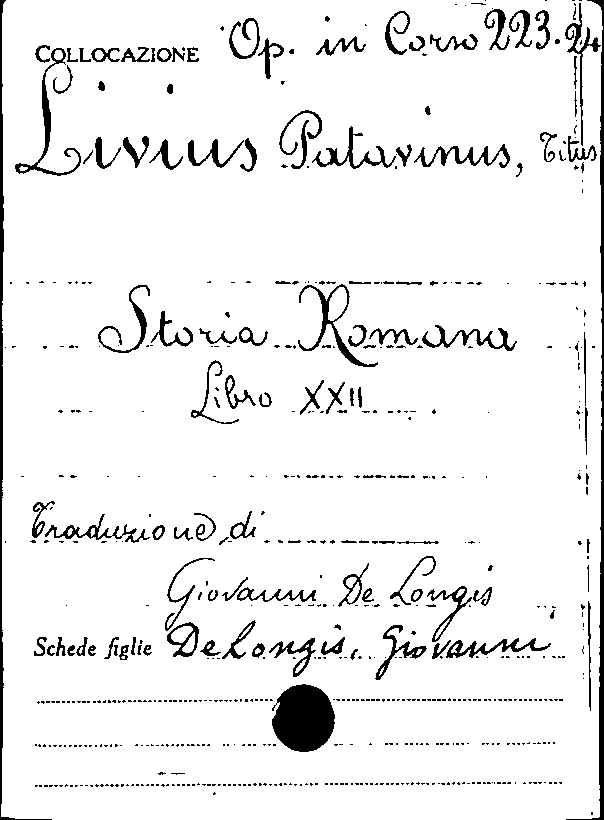 COLLOCAZIONE Op. in Corso 223.24
Livius Patavinus, Titus
Storia Romana
Libro XXII
Traduzione di
Giovanni De Longis
Schede figlie De Longis, Giovanni